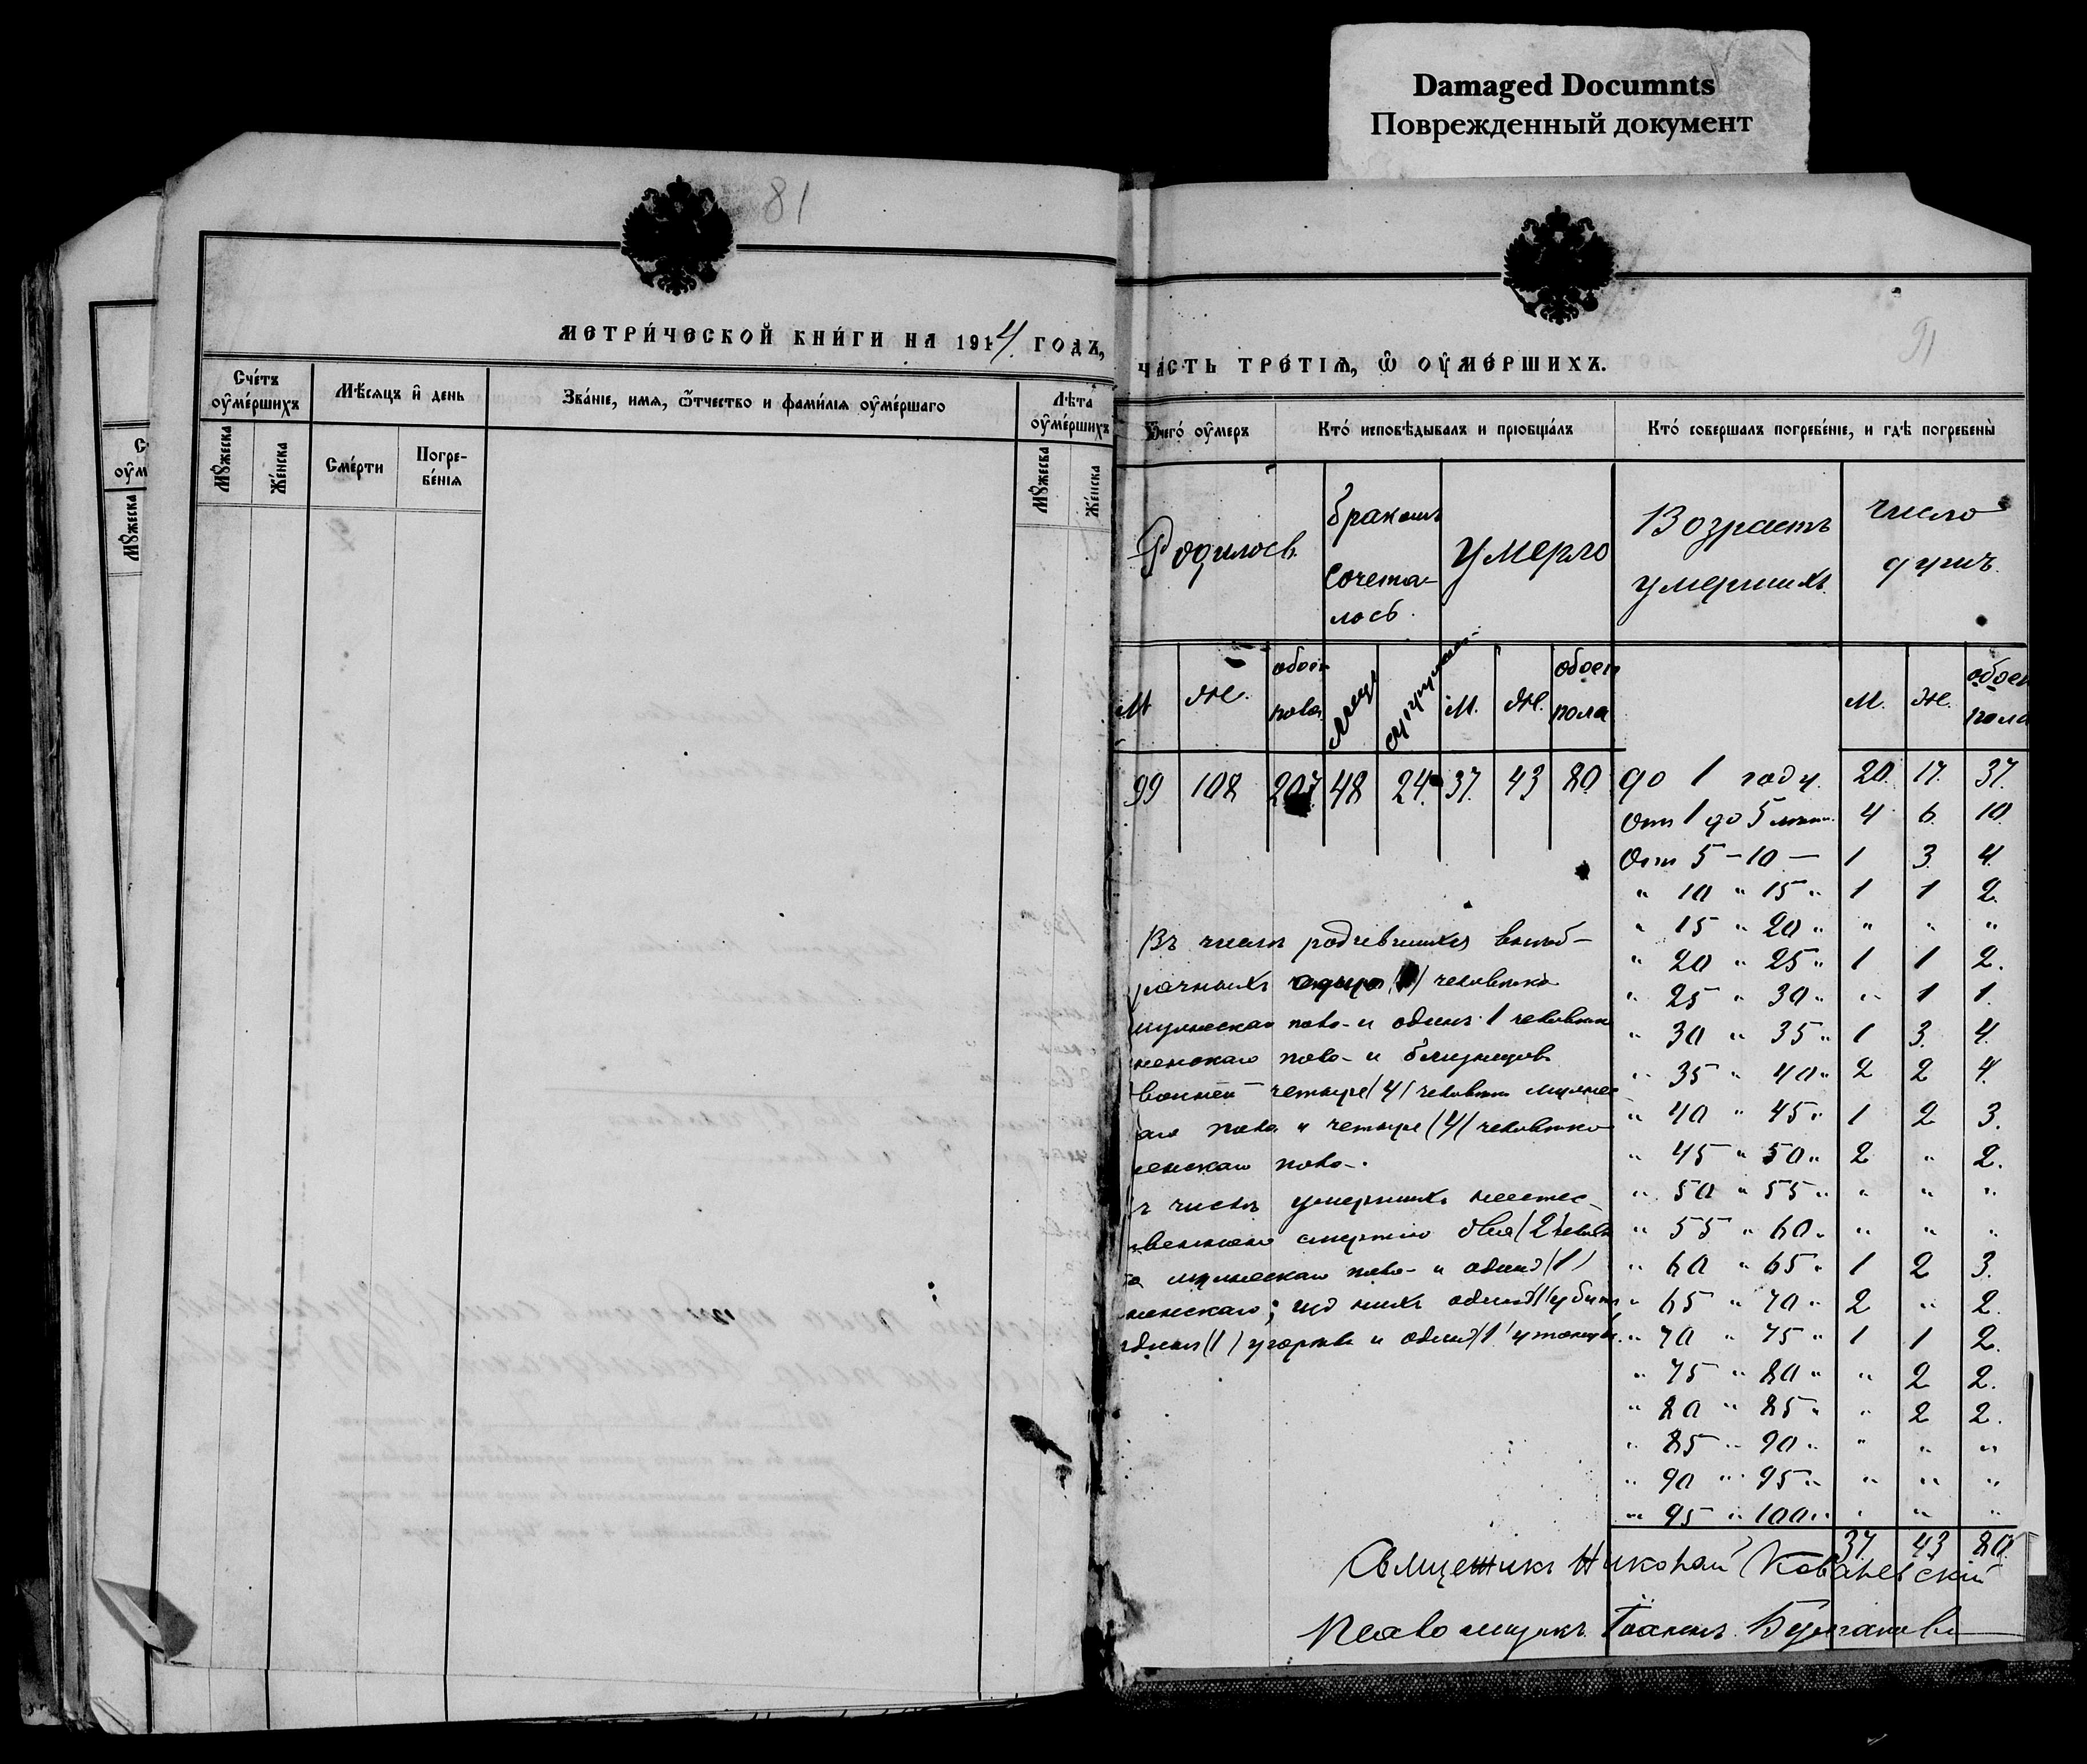 Damaged Documnts
Поврежденный документ
81
91
МЕТРИ́ЧЕСКОЙ КНИ́ГИ НА 1914 ГОДЪ,
ЧА́СТЬ ТРЕ́ТІѦ, Ѽ ОУ҆МЕ́РШИХЪ.
Сче́тъ оу҆ме́ршихъ
Мѣ́сяцъ и҆ день
Зва́ніе, имя, ѻ҆́тчество и фами́лія оу҆ме́ршаго
Лѣта оу҆ме́ршихъ
чего́ оу҆меръ
Кто́ исповѣ́дывалъ и пріобща́лъ
Кто́ соверша́лъ погребе́ніе, и гдѣ̀ погребены̀
Мꙋжеска
Же́нска
Сме́рти
Погре-
бе́нія
Мꙋжеска
Же́нска
Мꙋжеска
Родилось
бракомъ
сочета-
лось.
умерло
Возрастъ
умершихъ
число
душъ.
М
Же.
обоего
пола
супружеств
М.
Же.
обоего
пола
М.
Же.
обоего
пола
99 108 207 48 24 37 43 80
до 1 году 20 17. 37.
Отъ 1 до 5 лѣтъ 4 6. 10.
Отъ 5 – 10 – 1 3. 4.
" 10 " 15 " 1 1 2.
" 15 " 20 " " " "
" 20 " 25 " 1 1 2.
" 25 " 30 " " 1 1.
" 30 " 35 " 1 3. 4.
" 35 " 40 " 2 2 4.
" 40 " 45 " 1 2 3.
" 45 " 50 " 2 " 2.
" 50 " 55 " " " "
" 55 " 60 " " " "
" 60 " 65 " 1 2 3.
" 65 " 70 " 2 " 2.
" 70 " 75 " 1 1 2.
" 75 " 80 " " 2 2.
" 80 " 85 " " 2 2.
" 85 " 90 " " " "
" 90 " 95 " " " "
" 95 " 100 " " " "
37 43 80
Въ числѣ родившихся внѣб-
рачныхъ человѣка
мужескаго пола и одинъ 1 человѣкъ
женскаго пола и близнецовъ
четыре (4) человѣка мужес
аго пола и четыре (4) человѣка
женскаго пола.
ъ числѣ умершихъ неестес
твенною смертію два (2) человѣ
ка мужескаго пола и одинъ (1)
женскаго; изъ нихъ одинъ (1) убитъ
одинъ (1) угорѣлъ и одинъ (1) утонулъ.
Священникъ Николай Ковалевскій
Псаломщикъ Іоаннъ Булгаковъ